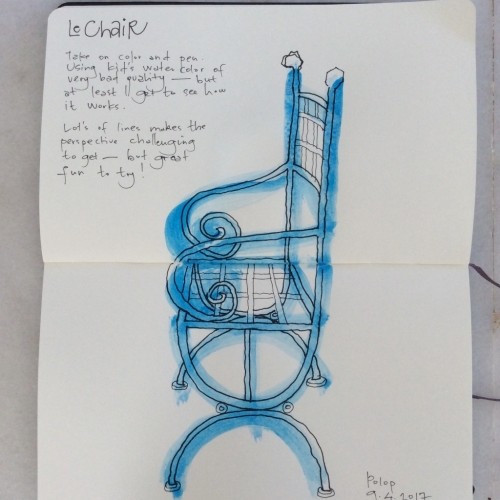 Le Chair
Take on color and pen.
Using kid's water color of
very bad quality — but
at least I get to see how
it works.
Lot's of lines makes the
perspective challenging
to get — but great
fun to try!
Polop
9.4.2017